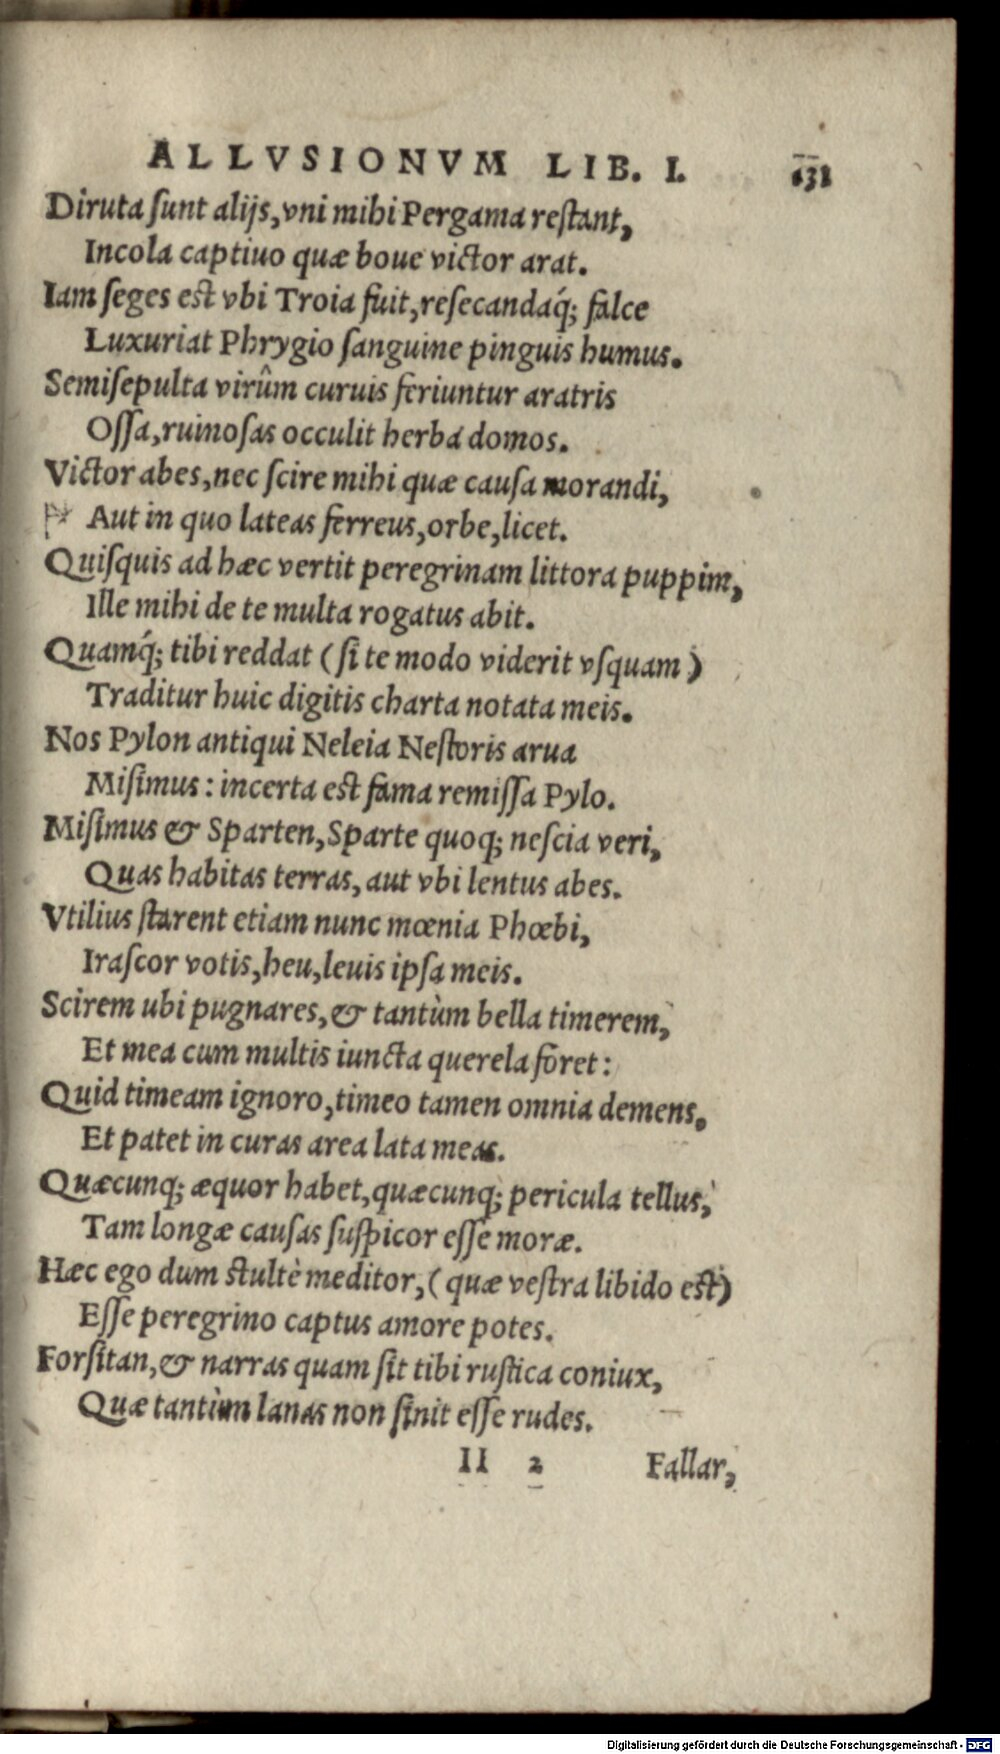 ALLVSIONVM LIB. I. 131
Diruta ſunt alijs, vni mihi Pergama reſtant,
Incola captiuo quæ boue victor arat.
Iam ſeges est vbi Troia fuit, reſecandaq́; falce
Luxuriat Phrygio ſanguine pinguis humus.
Semiſepulta virûm curuis feriuntur aratris
Oſſa, ruinoſas occulit herba domos.
Victor abes, nec ſcire mihi quæ cauſa morandi,
Aut in quo lateas ferreus, orbe, licet.
Quiſquis ad hæc vertit peregrinam littora puppim,
Ille mihi de te multa rogatus abit.
Quamq́; tibi reddat (ſi te modo viderit vſquam)
Traditur huic digitis charta notata meis.
Nos Pylon antiqui Neleia Neſtoris arua
Miſimus: incerta est fama remiſſa Pylo.
Miſimus & Sparten, Sparte quoq; neſcia veri,
Quas habitas terras, aut vbi lentus abes.
Vtilius ſtarent etiam nunc mœnia Phœbi,
Iraſcor votis, heu, leuis ipſa meis.
Scirem ubi pugnares, & tantùm bella timerem,
Et mea cum multis iuncta querela foret:
Quid timeam ignoro, timeo tamen omnia demens,
Et patet in curas area lata meas.
Quæcunq; æquor habet, quæcunq; pericula tellus,
Tam longæ cauſas ſuſpicor eſſe moræ.
Hæc ego dum stultè meditor, (quæ veſtra libido est)
Eſſe peregrino captus amore potes.
Forſitan, & narras quam ſit tibi ruſtica coniux,
Quæ tantùm lanas non ſinit eſſe rudes.
II 2 Fallar,
Digitalisierung gefördert durch die Deutsche Forschungsgemeinschaft - DFG